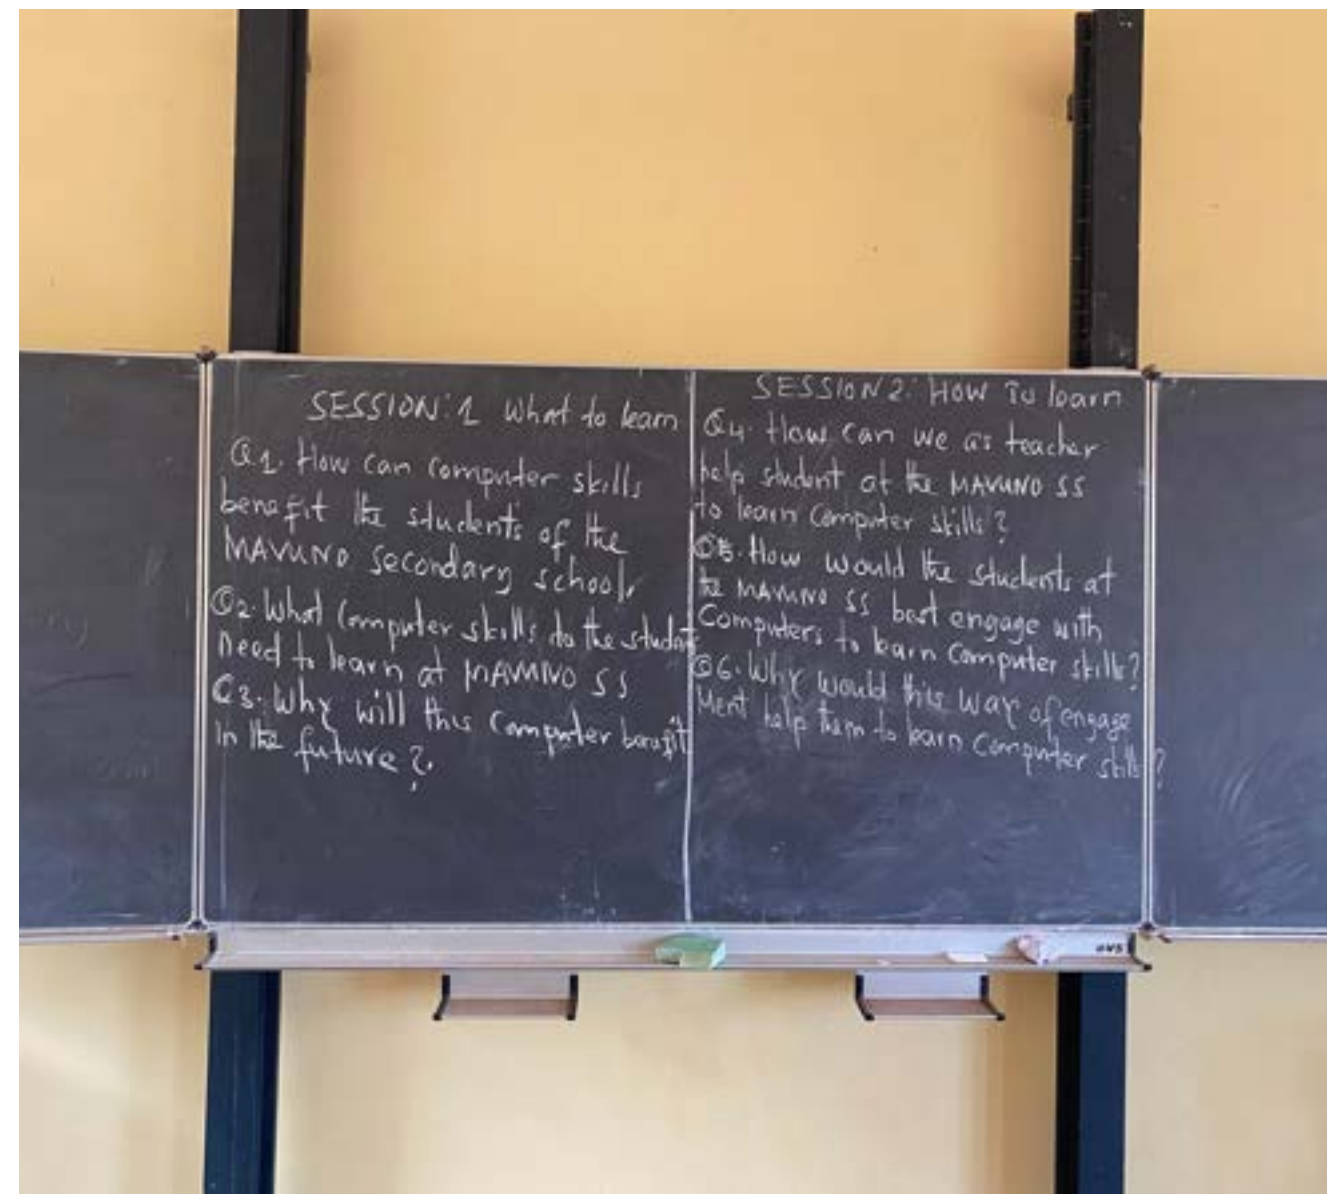 SESSION: 1 What to learn
Q1. How can computer skills
benefit the students of the
MAVUNO secondary school.
Q2. What Computer skills do the student
need to learn at MAVUNO SS
Q3. Why will this Computer benefit
in the future?
SESSION 2: HOW To learn
Q4. How can we as teacher
help student at the MAVUNO SS
to learn Computer skills?
Q5. How would the students at
the MAVUNO SS best engage with
Computers to learn Computer skills?
Q6. Why would this way of engage
Ment help them to learn Computer skills?